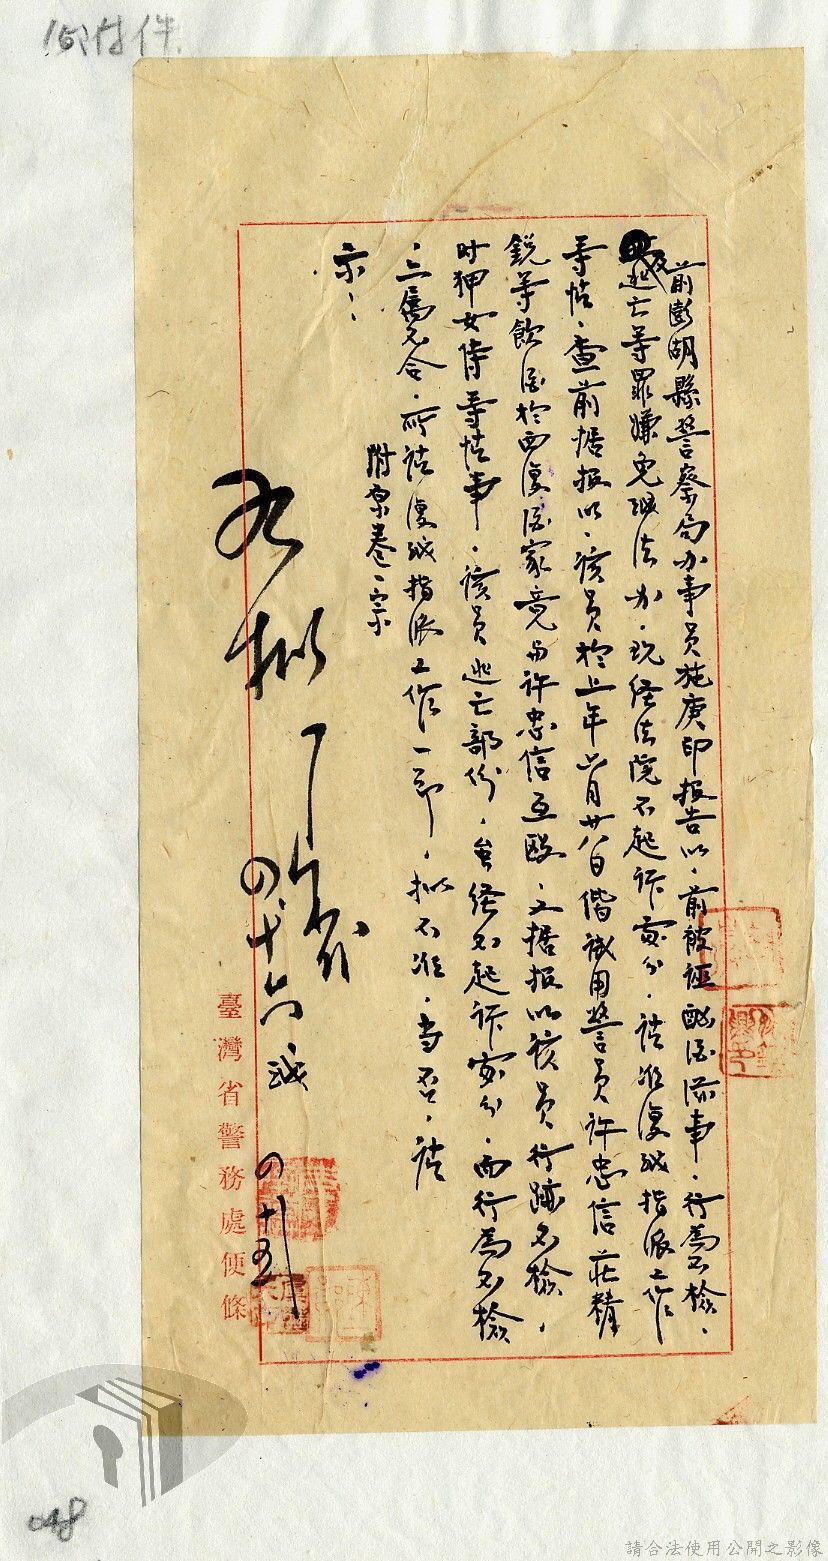 15附件
前澎湖縣警察局办事員施庚印报告以、前被誣酗酒滋事、行為不檢、
及逃亡等罪嫌免職法办、现经法院不起诉处分、請准復職指派工作
等情、查前据报以、該員於上年六月廿八日偕試用警員許忠信莊精
銳等飲酒於西復酒家竟与許忠信互毆、又据报以該員行跡不檢、
时狎女侍等情事、該員逃亡部份、虽经不起诉处分、而行為不檢
、亦属不合、所請復职指派工作一节、拟不准、当否、請
示：
附原卷一宗
如拟
四、十六
四十五
臺灣省警務處便條
048
請合法使用公開之影像